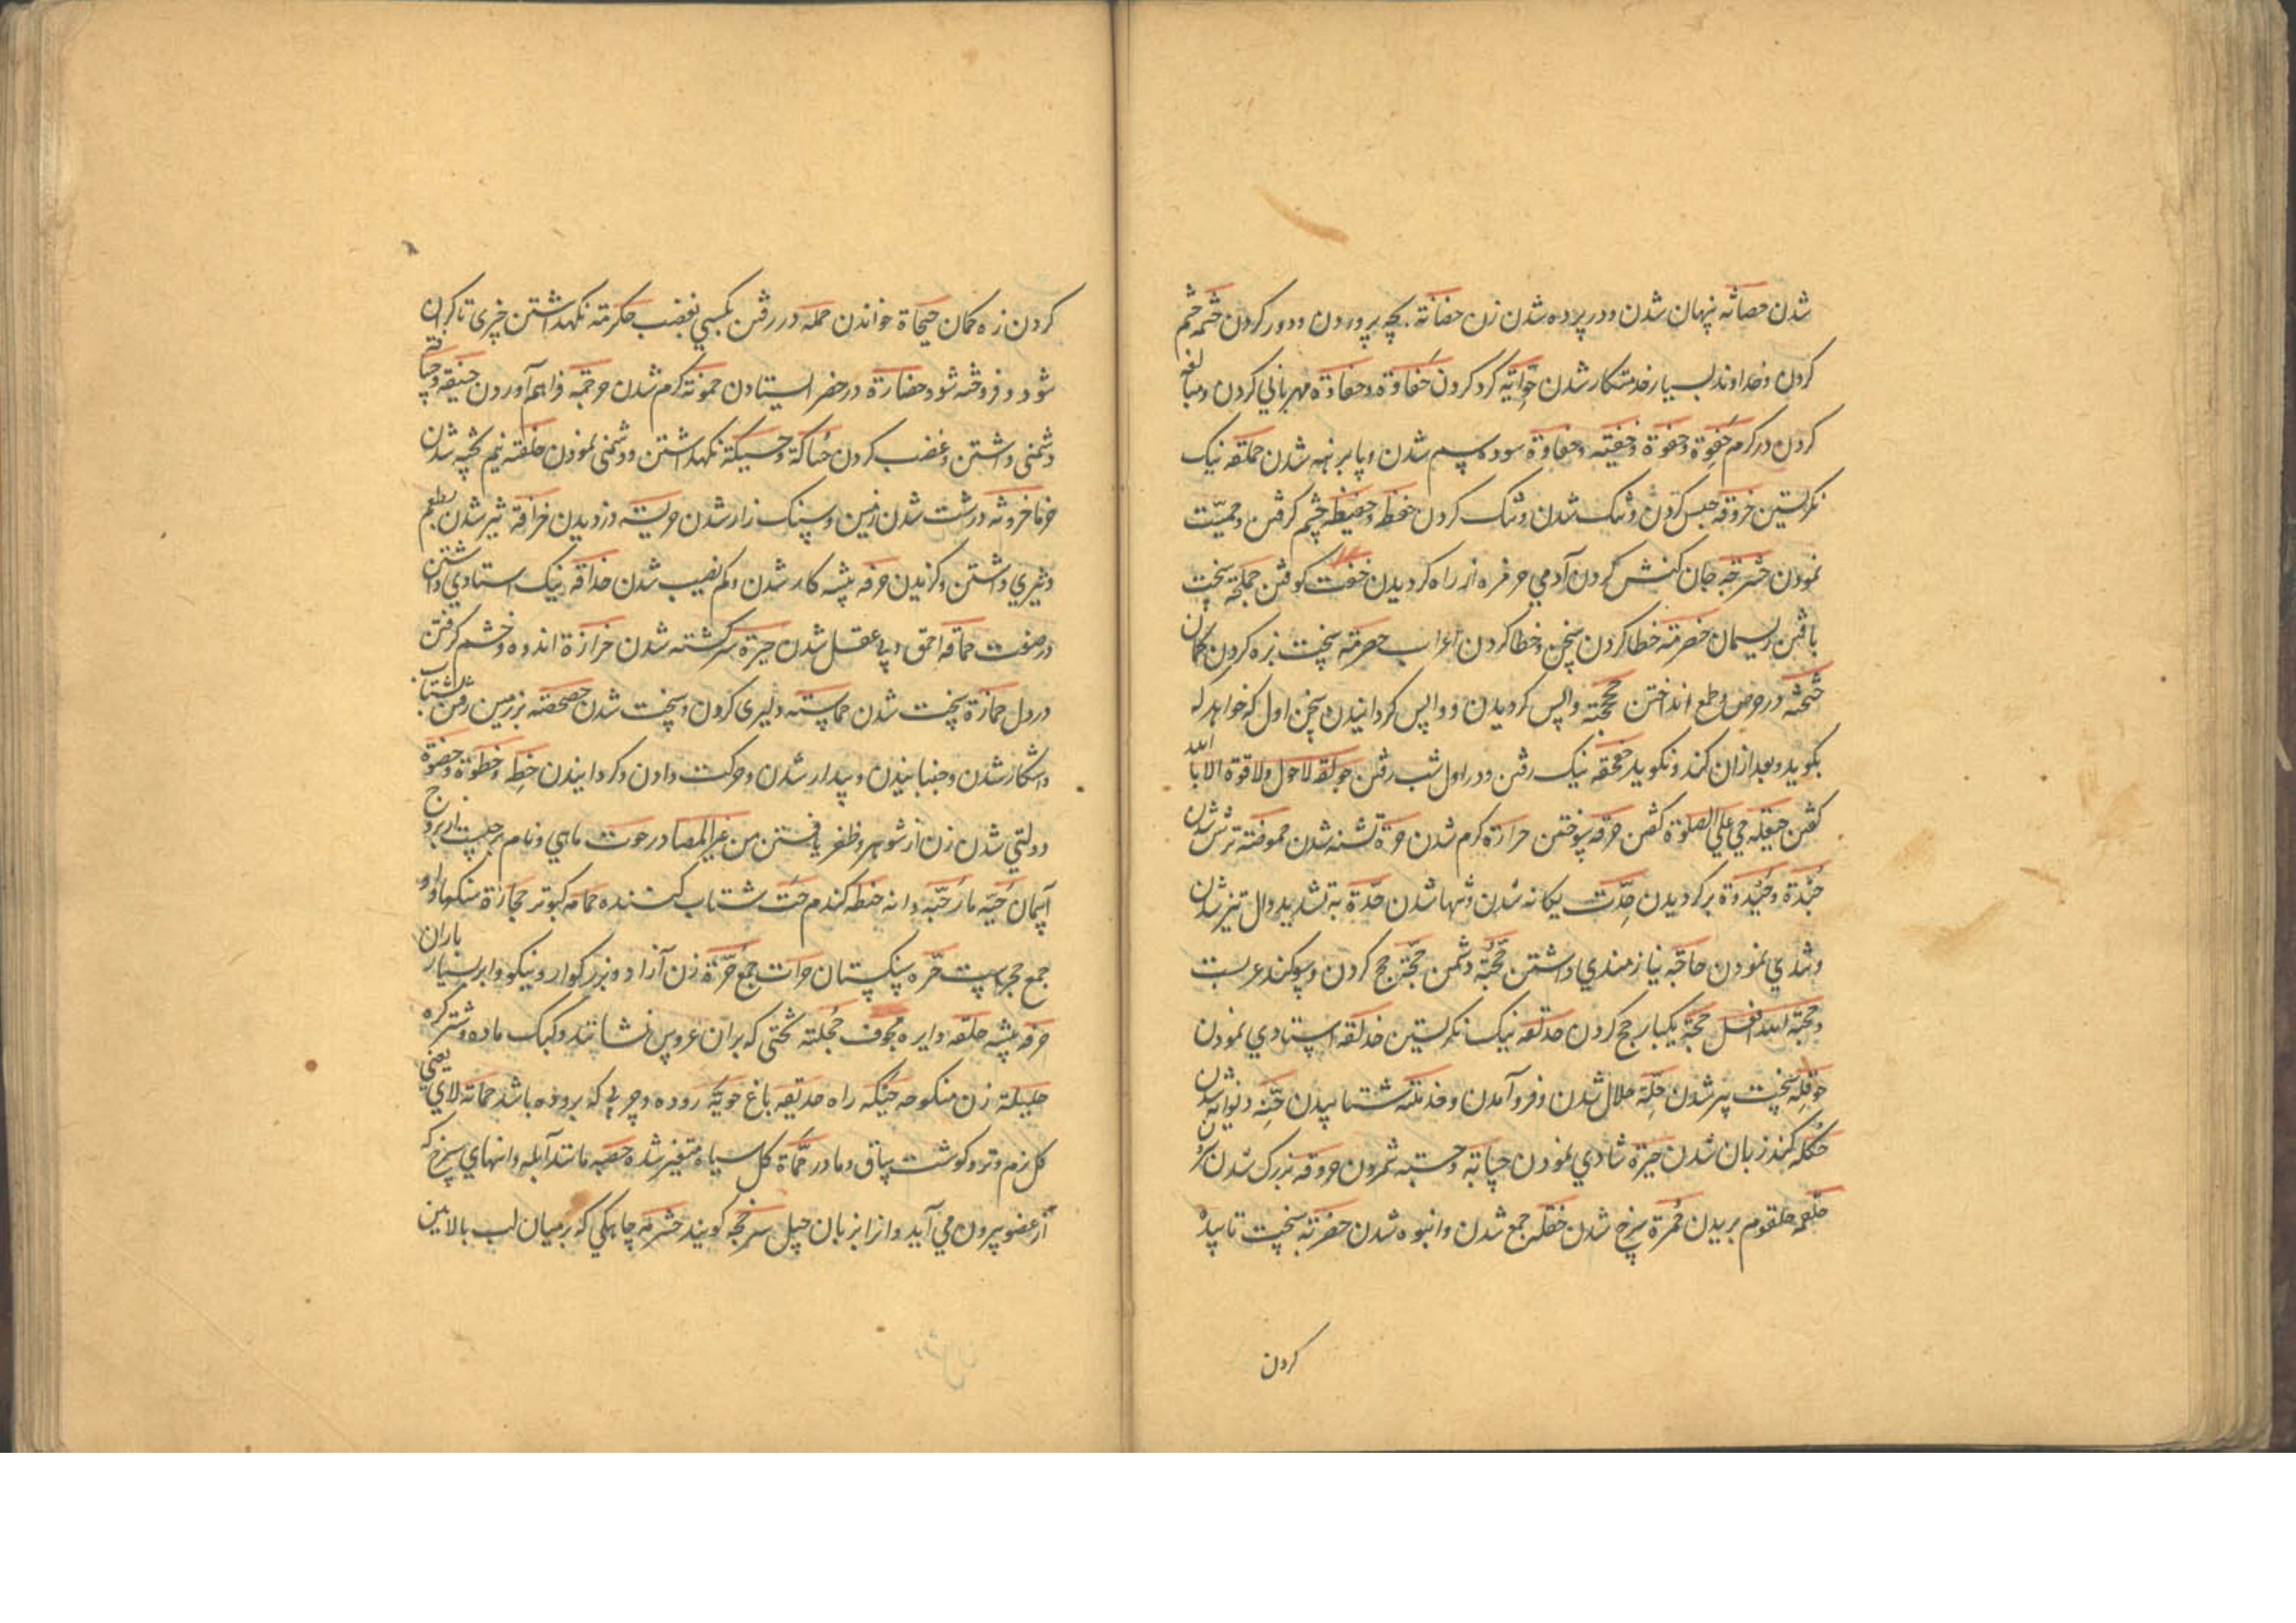 شدن حصانه پنهان شدن و در پرده شدن زن حضانة بچه پروردن و دور کردن حشمه خشم
کردن و خداوند بسیار خدمتکار شدن کرد کردن حفاوة و حفاوة مهربانی کردن و مبالغه
کردن در کرم حفوة و حفوة و حفیته و حفاوة سوده سم شدن و پا برهنه شدن حملقه نیک
نگرستین حبس کردن و تنک شدن و تنک کردن حفظ و حفیظه خشم کرفتن و حمیّت
نمودن حشرجه جان کنش کردن آدمی از راه کردیدن کوفتن سخت
بافتن ریسمان حضرمة خطا کردن سخن و خطا کردن اعراب حصرمة سخت بزه کردن کمان
در حرص و طمع انداختن واپس کردیدن و واپس کردانیدن سخن اول که خواهد که
بکوید و بعد از ان کند و نکوید حقحقه نیک رفتن و در اول شب رفتن حولقه لا حول ولا قوة الا بالله
کفتن حیعله حی علی الصلوة کفتن حرقه سوختن حرارة کرم شدن حرة تشنه شدن حموضة ترش شدن
برکردیدن حدّت یکانه شدن و تنها شدن حدّة به تشدید دال تیز شدن
و تندی نمودن حاجه نیازمندی داشتن دشمن حجّة حج کردن و سوکند عربست
و حجة الله افعل حجّة یکبار حج کردن حدلقه نیک نکرستین حذلقه استادی نمودن
حوقله سخت پیر شدن حلّة حلال شدن و فرو آمدن شتابیدن دیوانه شدن
حکله کند زبان شدن حبرة شادی نمودن حسابة و حسبة شمردن بزرک شدن
حلقمه حلقوم بریدن حمرة سرخ شدن جمع شدن و انبوه شدن سخت
کردن
کردن زه کمان خواندن حمله در رفتن بکسی بغضب حکرة نکهداشتن چیزی تا کران
شود و فروخته شود حضارة در حضر ایستادن کرم شدن فراهم آوردن
دشمنی داشتن و غضب کردن حساکة و حسیکة نکهداشتن و دشمنی نمودن حلقنه نیم پخته شدن
خرما درشت شدن زمین و سنک زار شدن دزدیدن حرافة تیز شدن طعم
و تیزی داشتن و کزیدن حرفه پیشه کار شدن و کم نصیب شدن حذاقه نیک استادی داشتن
در صنعت حماقه احمق و بی عقل شدن حیرة سرکشته شدن حزازة اندوه و خشم کرفتن
در دل حمازة سخت شدن حماسته دلیری کردن و سخت شدن بر زمین رفتن شتاب
و اشکار شدن و جنبانیدن و بیدار شدن و حرکت دادن و کردانیدن و حظوة و حظوة
دولتی شدن زن از شوهر و ظفر یافتن من غیر المصادر حوت ماهی و نام برجیست از بروج
آسمان حیّه مار حبّه دانه حنطه کندم حت شتاب کشنده حمامه کبوتر حجارة سنکها و او
جمع حجر است حرّه سنکستان حرّات جمع حرّة زن آزاد و بزرکوار و نیکو و ابر بسیار باران
حرفه پیشه حلقه دایره مجوف حجله تختی که بران عروس نشانند و کبک ماده و شتر کره
حلیلة زن منکوحه حبکه راه حدیقه باغ حویّه روده و چربی که بروده باشد حماة لای یعنی
کل نرم و تر و کوشت ساق و مادر حمأة کل سیاه متغیر شده حصبه مانند آبله دانهای سرخ که
از عضو بیرون می آید و انرا بزبان سرخجه کویند حثرمه چاهکی که بر میان لب بالائین